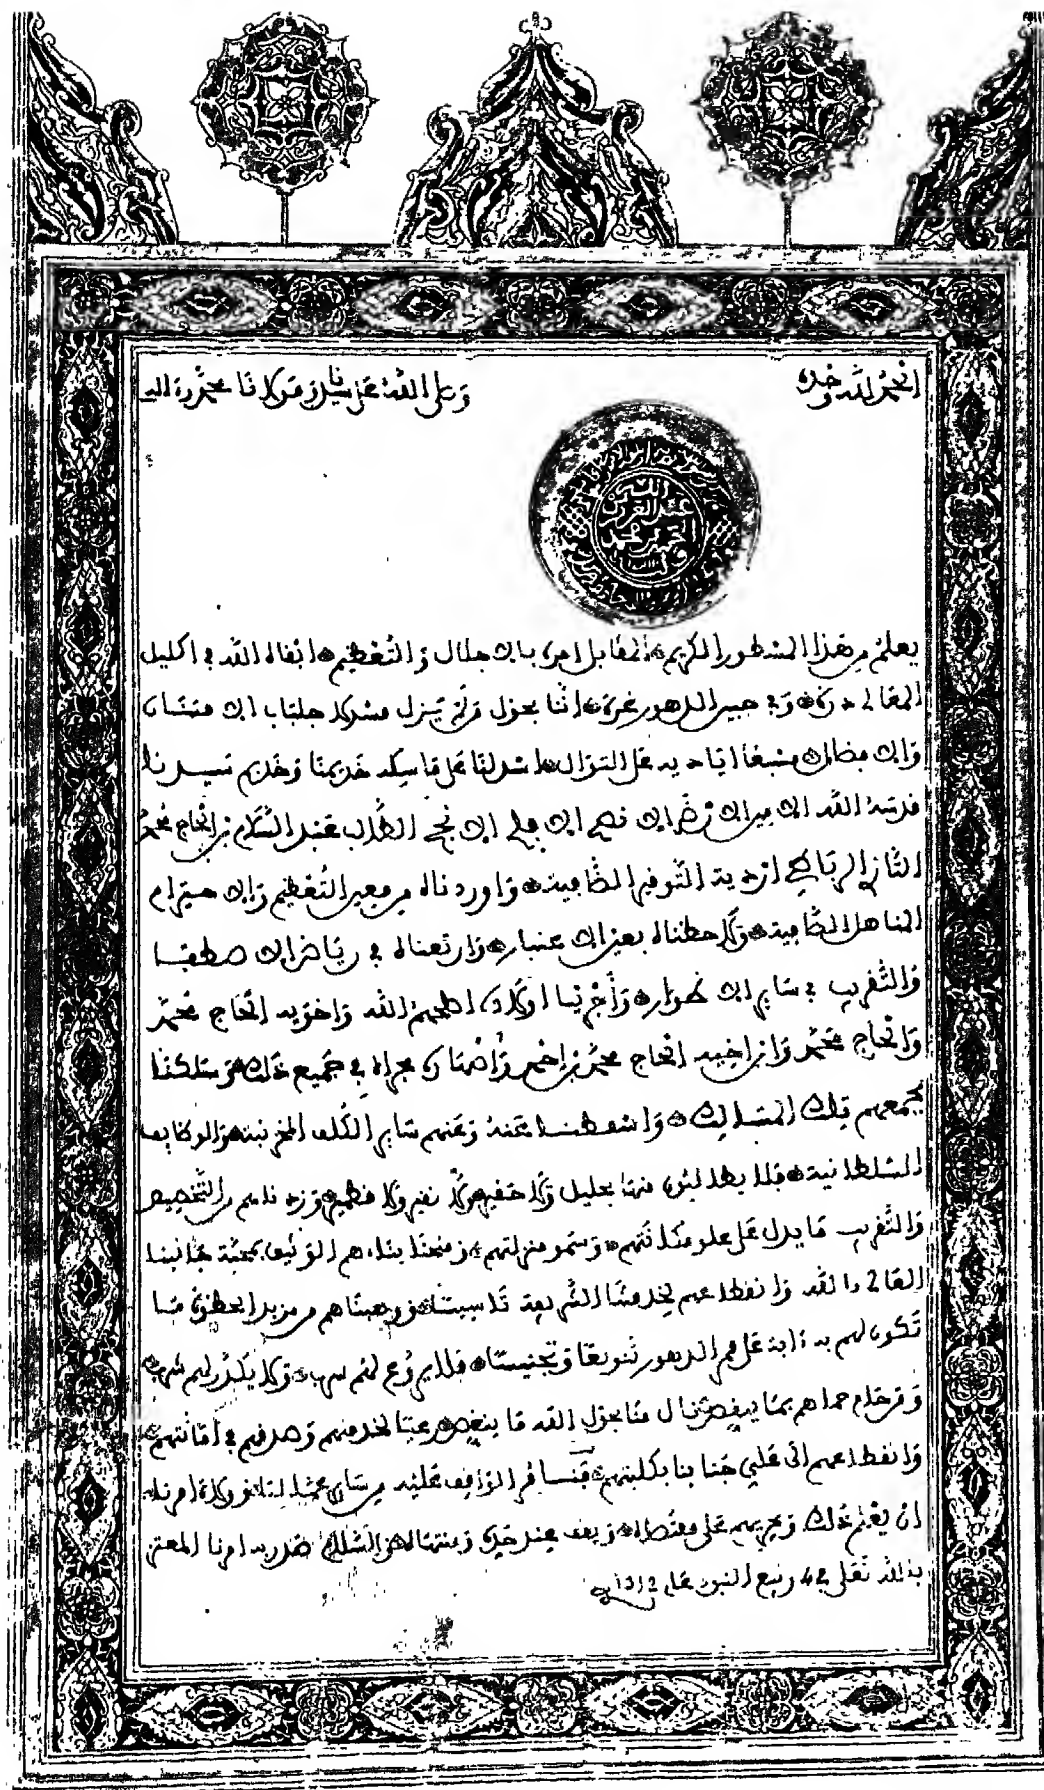 الحمد لله وحده وصلى الله على سيدنا ومولانا محمد وآله
عبد العزيز بن الحسن بن محمد
يعلم من هذا المسطور الكريم والمقابل امره بالاجلال والتعظيم ابقاه الله في اكليل
المعالي درة وفي جبين الدهور غرة اننا بحول من لم يزل مسربلا جلباب الامتنان
والافضال مسبغا اياديه على التوال اسدلنا على ماسكه خديمنا وخديم سيدنا
قدسه الله الاميرال الارضى الانصح الافلح الانجح الطالب عبد السلام بن الحاج محمد
التازي الرباطي اردية التوقير الضافية واوردناه من معين التعظيم والاحترام
المناهل الصافية ولاحظناه بعين الاعتبار وارتعناه في رياض الاصطفا
والتقريب في ساير الاطوار واجرينا اولاده اصلحهم الله واخويه الحاج محمد
والحاج محمد وابن اخيه الحاج محمد بن احمد واصهاره مجراه في جميع ذلك وسلكنا
بجميعهم تلك المسالك واسقطنا عنه وعنهم ساير الكلف المخزنية والوظايف
السلطانية فلا يطالبون منها بجليل ولا حقير ولا نقير ولا قطمير وزدناهم من التخصيص
والتقريب ما يدل على علو مكانتهم وسمو منزلتهم ومنحنا بناءهم الوثيق بمحبة جانبنا
العالي دالله وانقطاعهم لخدمتنا الشريفة تاسيسا ووهبناهم من مزيد الحظوة ما
تكون لهم به اابة على مر الدهور تنويعا وتجنيسا فلا يروع لهم سرب ولا يكدر لهم شرب
ومن حام حماهم بما ينقص ينال منا بحول الله ما ينغص رعيا لخدمتهم وصدقهم في امانتهم
وانقطاعهم الى علي جنابنا بكليتهم فنامر الواقف عليه من ساير عمالنا وولاة امرنا
ان يعلم ذلك ويجريهم على مقتضاه ويقف عند حده ومنتهاه والسلام صدر به امرنا المعتز
بالله تعلى في 4 ربيع النبوي عام 1312